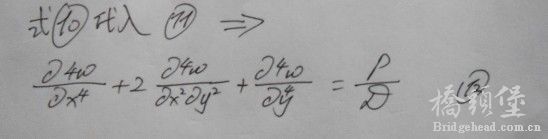 式⑩代入 ⑪ ⇒
∂⁴ω/∂x⁴ + 2 ∂⁴ω/∂x²∂y² + ∂⁴ω/∂y⁴ = P/D
橋頭堡
Bridgehead.com.cn